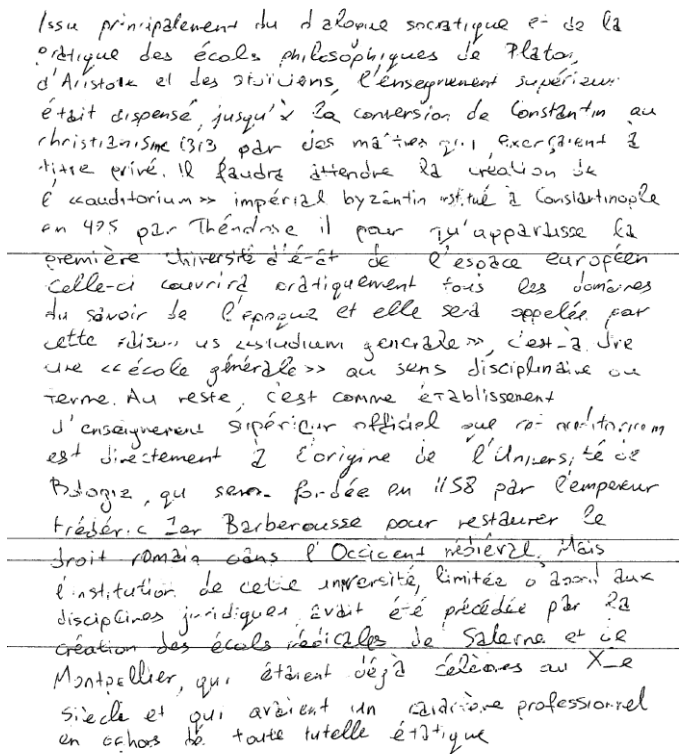 Issu principalement du dialogue socratique et de la
pratique des écols philosophiques de Platon,
d'Aristote et des stoïciens, l'enseignement supérieur
était dispensé, jusqu'à la conversion de Constantin au
christianisme (313 par des maîtres qui exerçaient à
titre privé. Il faudra attendre la création de
l'«auditorium» impérial byzantin institué à Constantinople
en 425 par Théodose il pour qu'apparaisse la
première Université d'état de l'espace européen
Celle-ci couvrira pratiquement tous les domaines
du savoir de l'époque et elle sera appelée par
cette «studium generale», c'est-à dire
une «école générale» au sens disciplinaire du
terme. Au reste, c'est comme établissement
d'enseignement supérieur officiel que cet auditorium
est directement à l'origine de l'Université de
Bologne, qui sera fondée en 1158 par l'empereur
Frédéric 1er Barberousse pour restaurer le
droit romain dans l'Occident médiéval. Mais
l'institution de cette université, limitée d'abord aux
disciplines juridiques avait été précédée par la
création des écols médicales de Salerne et de
Montpellier, qui étaient déjà célèbres au X_e
siècle et qui avaient un caractère professionnel
en dehors de toute tutelle étatique